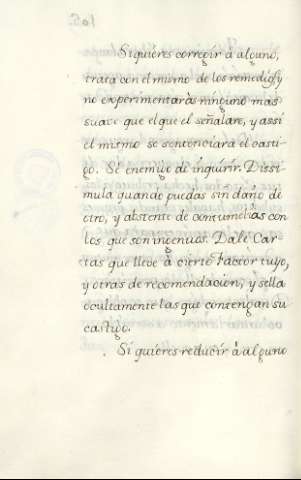 106.
Si quieres corregir à alguno,
trata con el mismo de los remedios, y
no experimentaràs ninguno mas
suave que el que el señalare, y assi
el mismo se sentenciarà el casti-
go. Se enemigo de inquirir. Dissi-
mula quando puedas sin daño de
otro, y abstente de contumelias con
los que son ingenuos. Dale Car-
tas que lleve à cierto Factor tuyo,
y otras de recomendacion, y sella
ocultamente las que contengan su
castigo.
Si quieres reducir à alguno